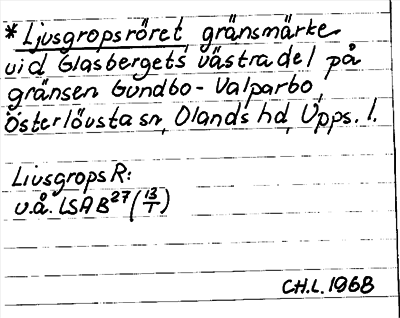 *Ljusgropsröret gränsmärke
vid Glasbergets västra del på
gränsen Gundbo-Valparbo,
Österlövsta sn, Olands hd, Upps. l.
Liusgrops R:
u.å. LSA B27 (13/1)
CH.L. 1968